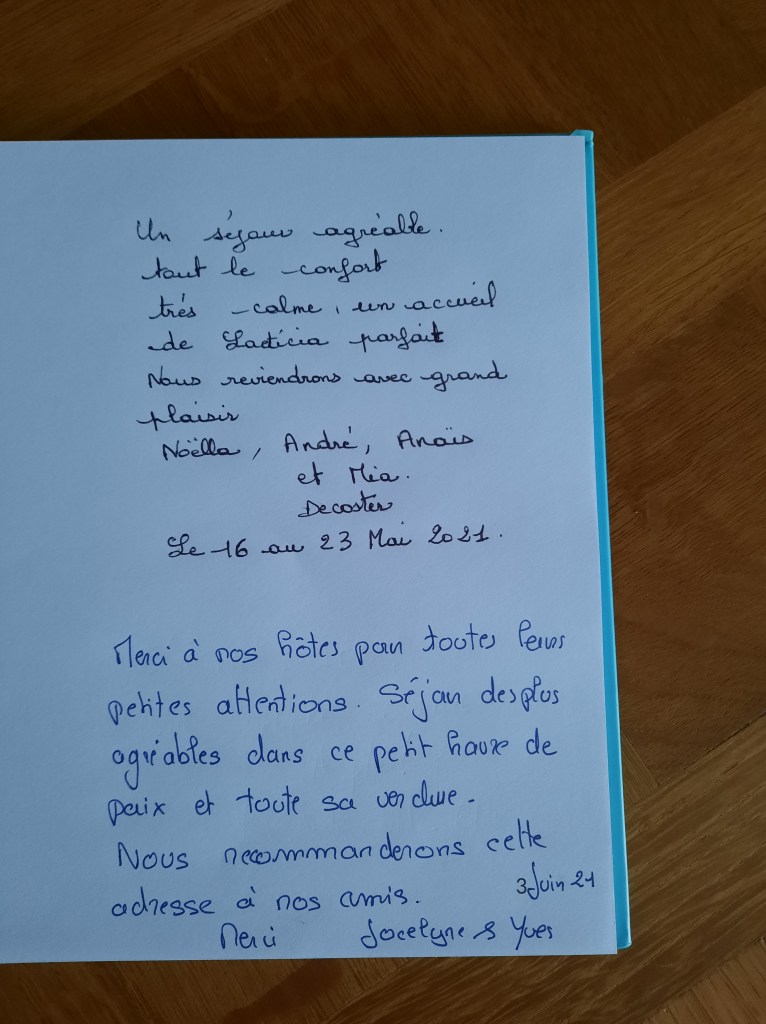 Un séjour agréable.
tout le confort
trés calme, un accueil
de Laeticia parfait
Nous reviendrons avec grand
plaisir
Noëlla, André, Anaïs
et Mia.
Decoster
Le 16 au 23 Mai 2021.
Merci à nos hôtes pour toutes leurs
petites attentions. Séjour des plus
agréables dans ce petit havre de
paix et toute sa verdure.
Nous recommanderons cette
adresse à nos amis.
3 Juin 21
Merci Jocelyne & Yves